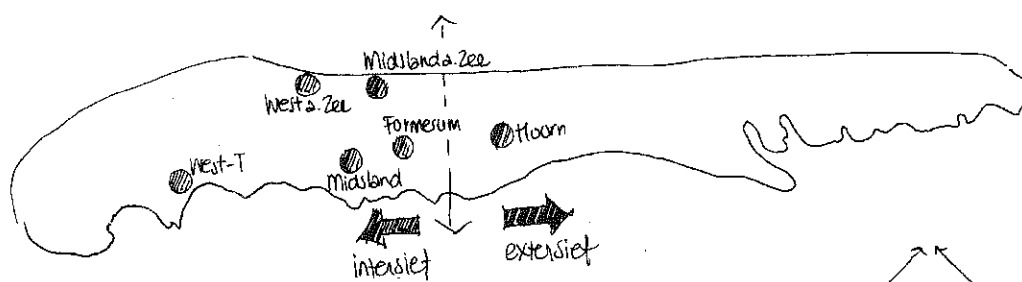 Midsland a. Zee
West a. Zee
Formerum
Hoorn
West-T
Midsland
intensief
extensief